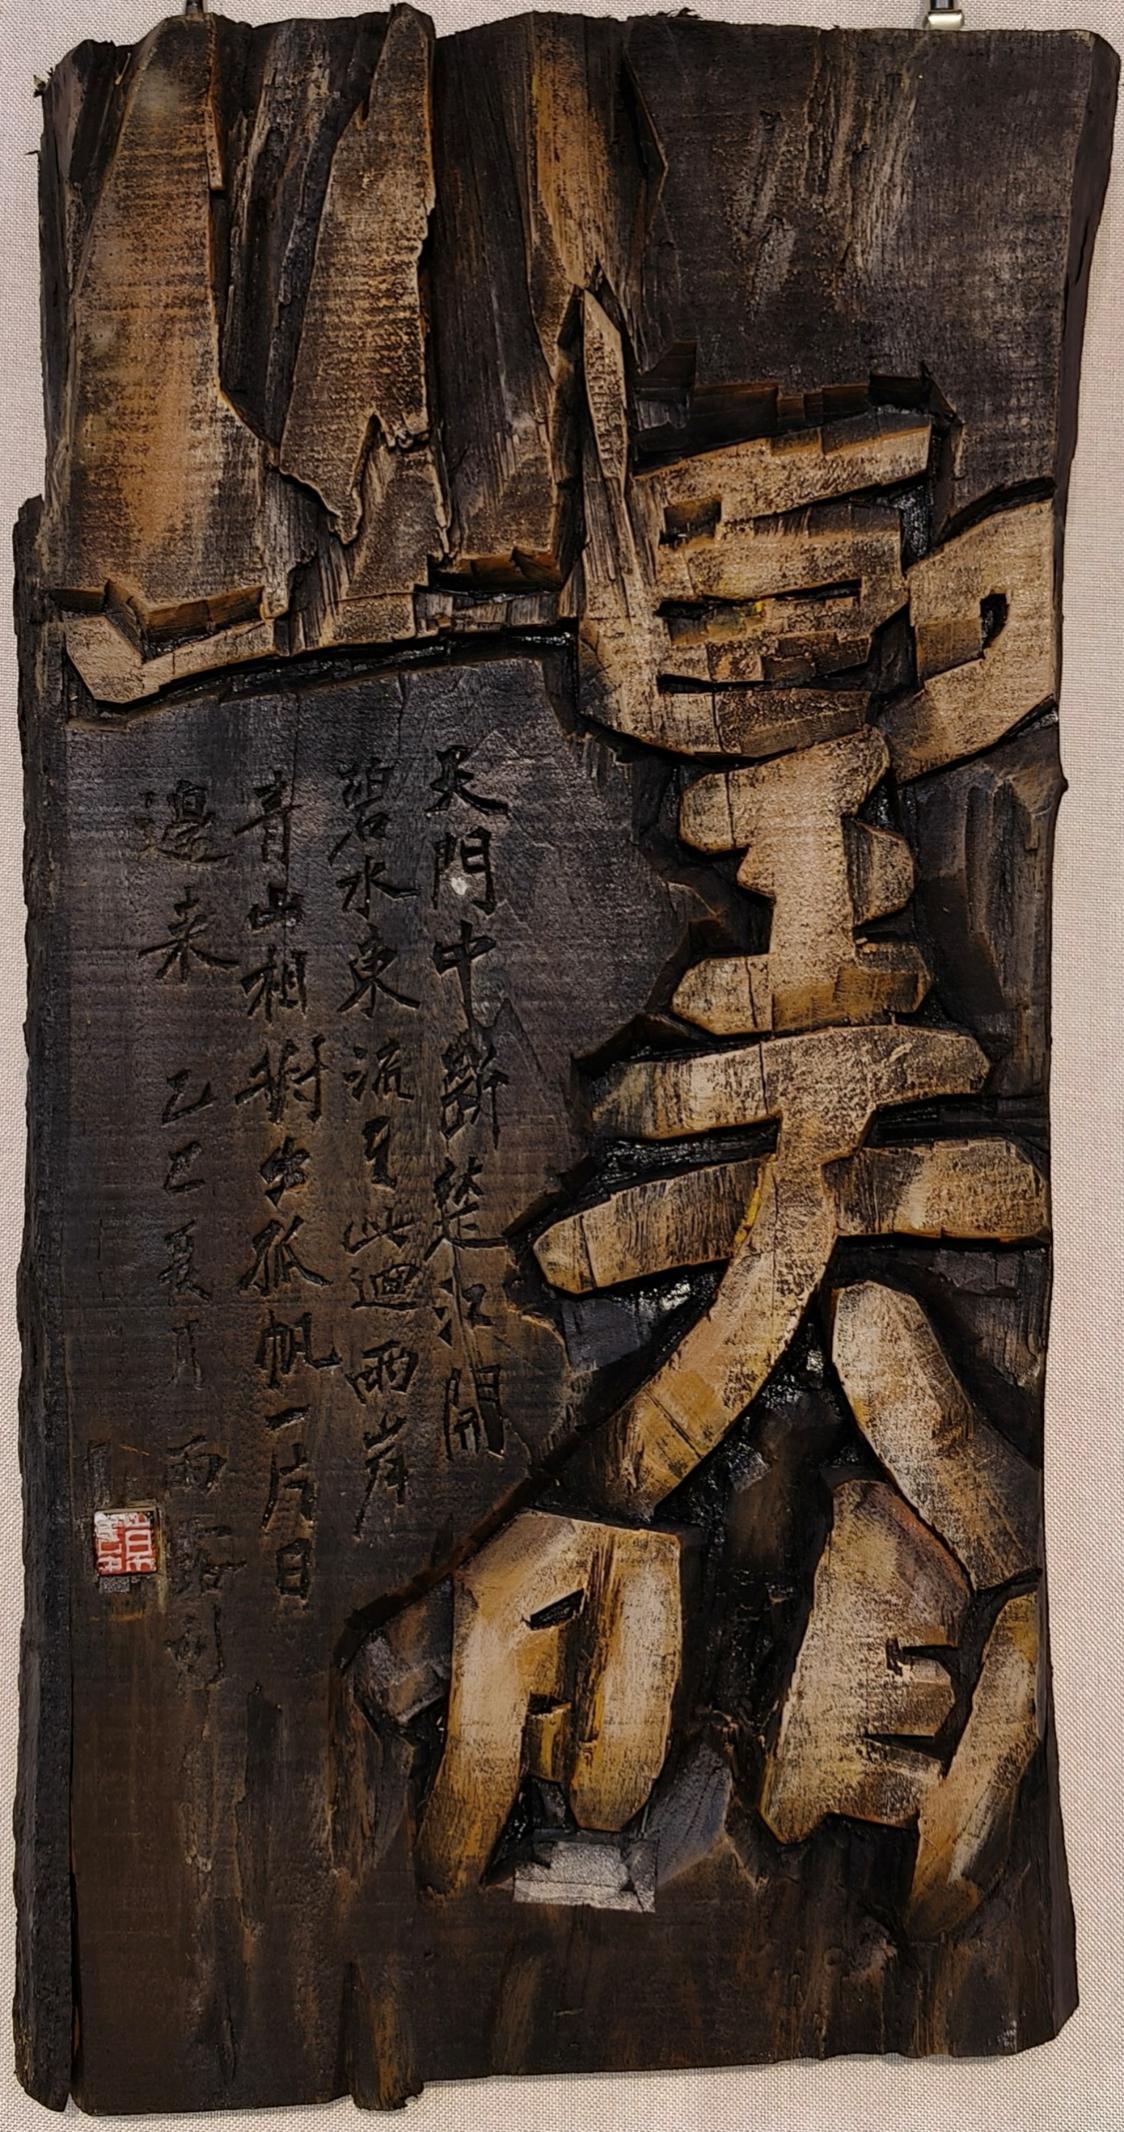 望天門山
天門中斷楚江開
碧水東流至此迴兩岸
青山相對出孤帆一片日
邊来 乙巳夏月 雨